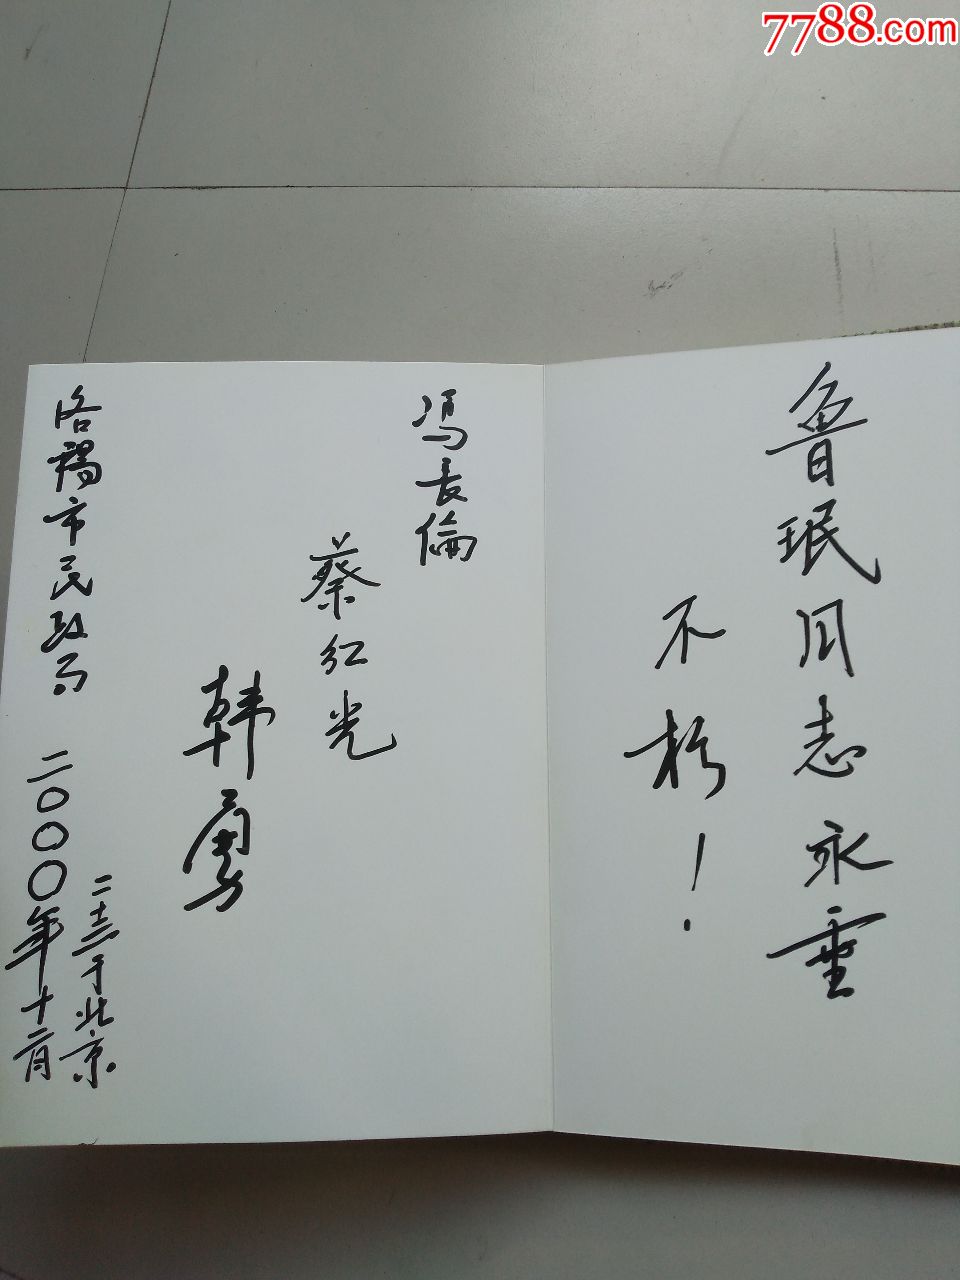 7788.com
鲁珉同志永垂
不朽！
冯长倫
蔡红光
韩勇
洛陽市民政局
二〇〇〇年十二月
于北京